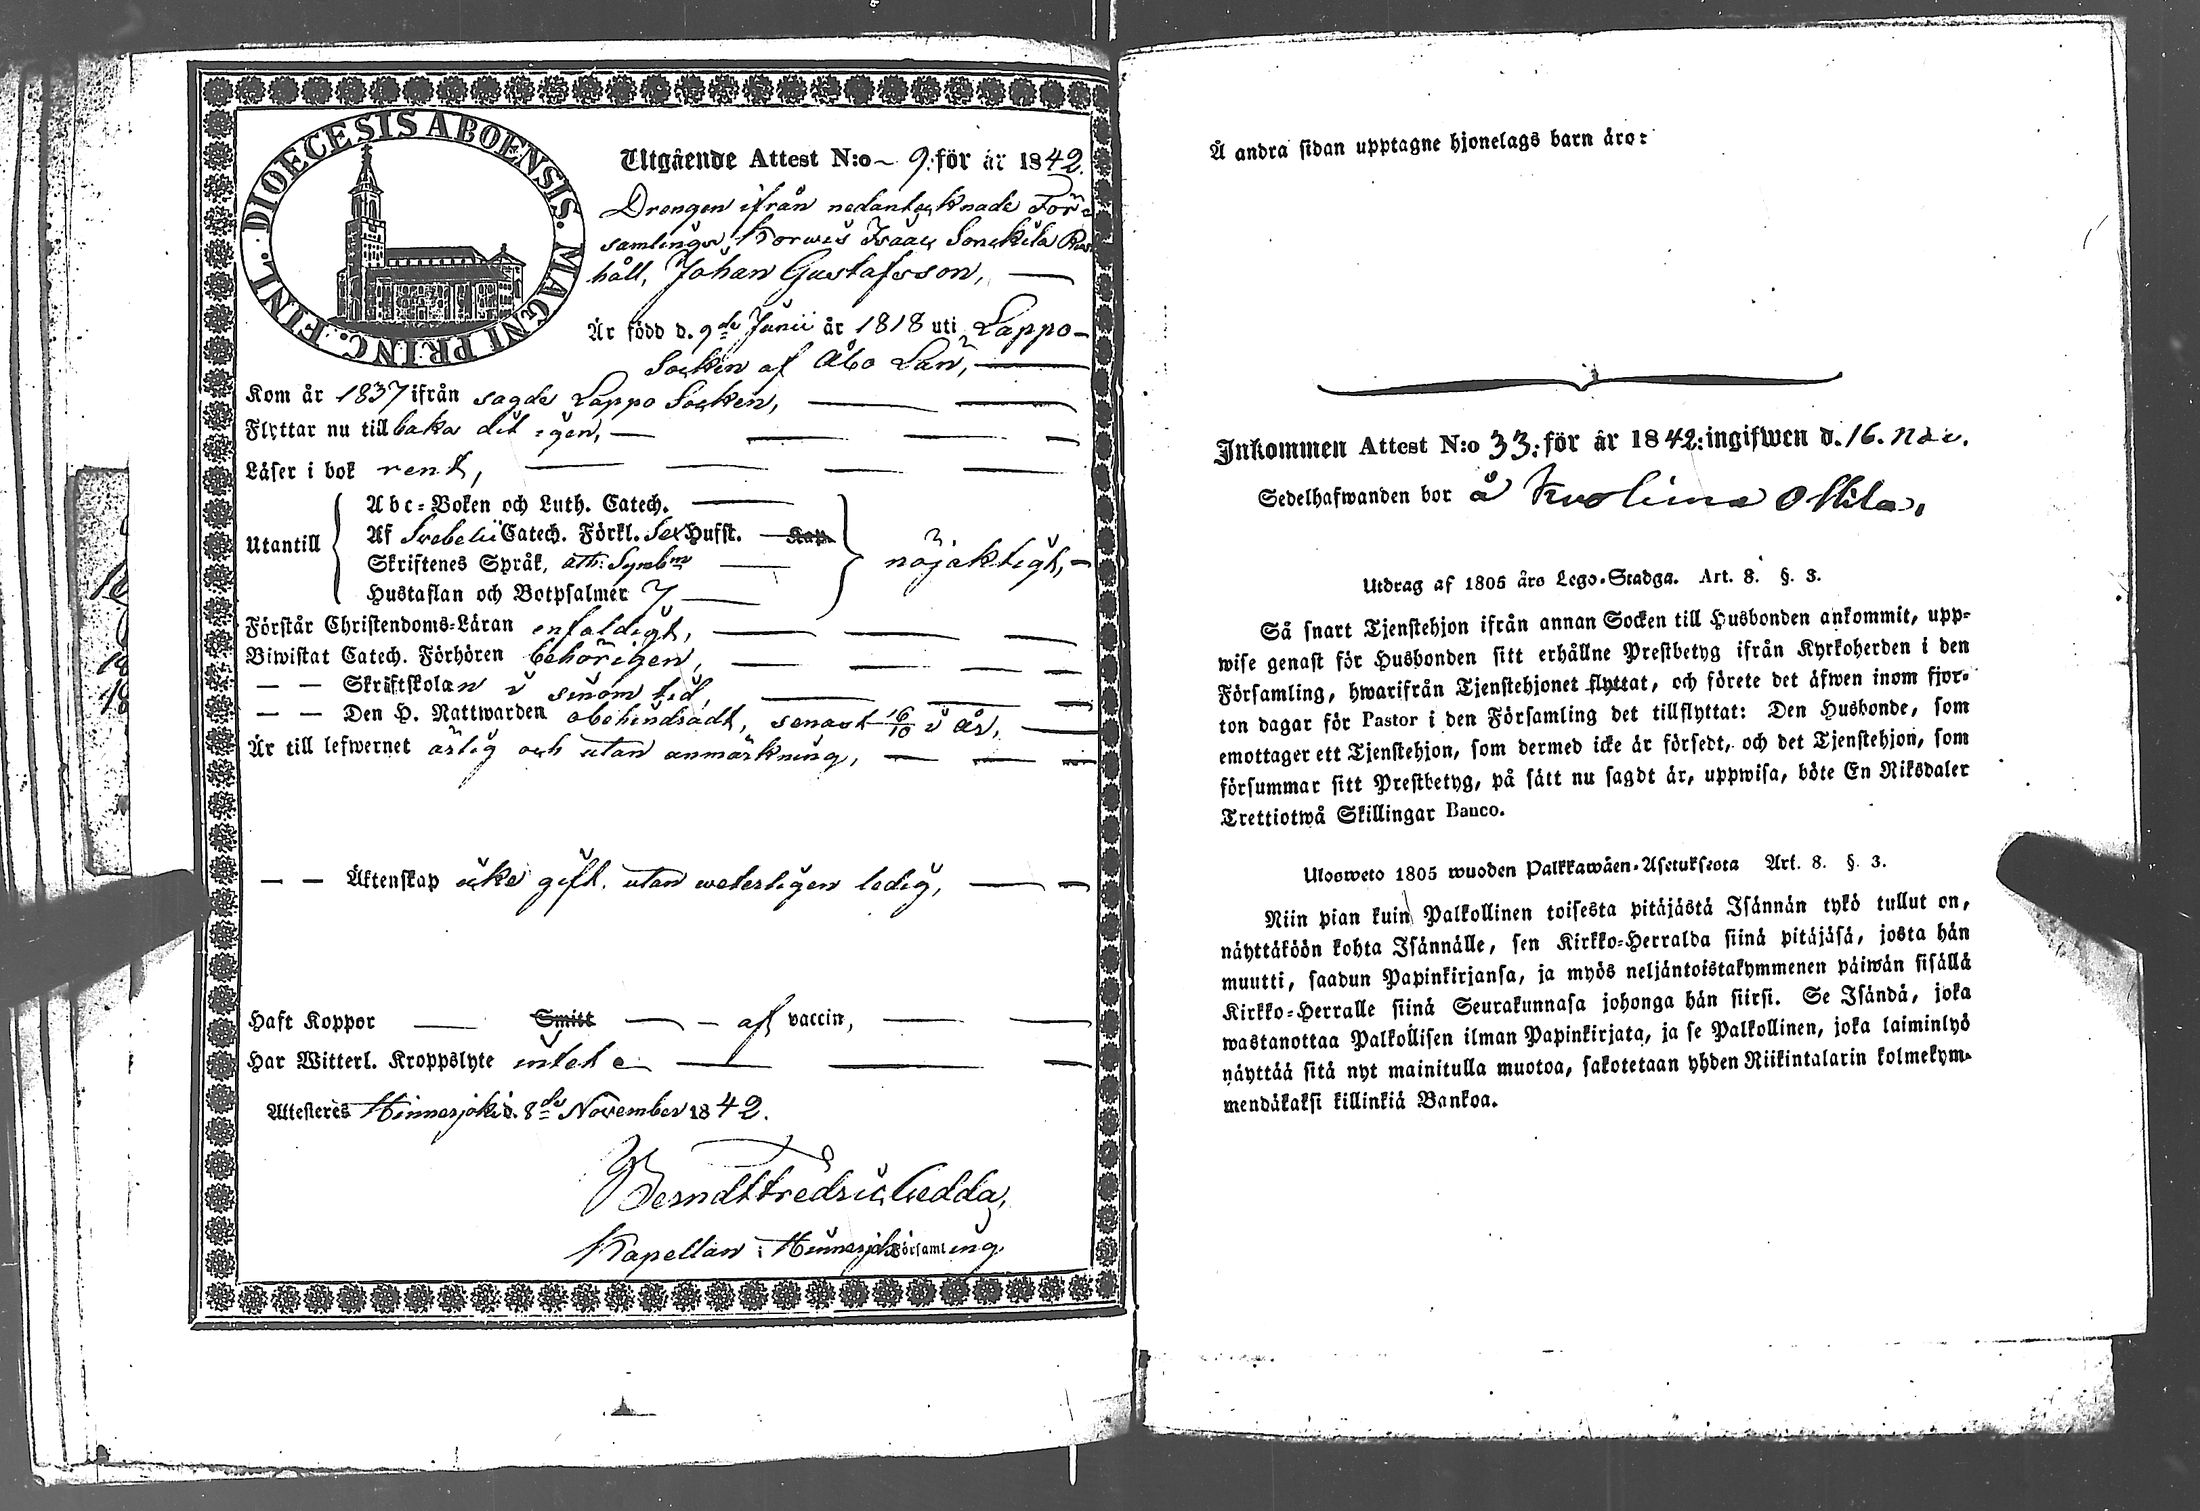 DIOECESIS ABOENSIS. MAGNI PRINC. FINL.
Utgående Attest N:o 9: för år 1842.
Drengen ifrån nedantecknade För-
samlings, Korwis Isaac Sonckila Rus
håll, Johan Gustafsson,
Är född d. 9de Junii år 1818 uti Lappo
Socken af Åbo Län,
Kom år 1837 ifrån sagde Lappo Socken,
Flyttar nu tillbaka dit igen,
Läser i bok rent,
Utantill
Abc-Boken och Luth. Catech.
Af Svebelii Catech. Förkl. Sex Hufst. Kap.
Skriftenes Språk, ath: Symb
Hustaflan och Botpsalmer 7
nöjaktigt,
Förstår Christendoms-Läran enfaldigt,
Biwistat Catech. Förhören behörigen,
— — Skriftskolan i sinom tid,
— — Den H. Nattwarden obehindradt, senast 16/10 i år,
Är till lefwernet ärlig och utan anmärkning,
— — Äktenskap icke gift, utan weterligen ledig,
Haft Koppor — Smitt — af vaccin,
Har Witterl. Kroppslyte intet
Attesteres Hinnerjoki d. 8de November 1842.
Berndt Fredric Cedda,
Kapellan i Hinnerjoki Församling.
Å andra sidan upptagne hjonelags barn äro:
Inkommen Attest N:o 33: för år 1842: ingifwen d. 16. Nov.
Sedelhafwanden bor å Kvolima Ollila,
Utdrag af 1805 års Lego-Stadga. Art. 8. §. 3.
Så snart Tjenstehjon ifrån annan Socken till Husbonden ankommit, upp-
wise genast för Husbonden sitt erhållne Prestbetyg ifrån Kyrkoherden i den
Församling, hwarifrån Tjenstehjonet flyttat, och förete det äfwen inom fjor-
ton dagar för Pastor i den Församling det tillflyttat: Den Husbonde, som
emottager ett Tjenstehjon, som dermed icke är försedt, och det Tjenstehjon, som
försummar sitt Prestbetyg, på sätt nu sagdt är, uppwisa, böte En Riksdaler
Trettiotwå Skillingar Banco.
Ulosweto 1805 wuoden Palkkawäen-Asetuksesta Art. 8. §. 3.
Niin pian kuin Palkollinen toisesta pitäjästä Isännän tykö tullut on,
näyttäköön kohta Isännälle, sen Kirkko-Herralda siinä pitäjäsä, josta hän
muutti, saadun Papinkirjansa, ja myös neljäntoistakymmenen päiwän sisällä
Kirkko-Herralle siinä Seurakunnasa johonga hän siirsi. Se Isändä, joka
wastanottaa Palkollisen ilman Papinkirjata, ja se Palkollinen, joka laiminlyö
näyttää sitä nyt mainitulla muotoa, sakotetaan yhden Riikintalarin kolmekym-
mendäkaksi killinkiä Bankoa.